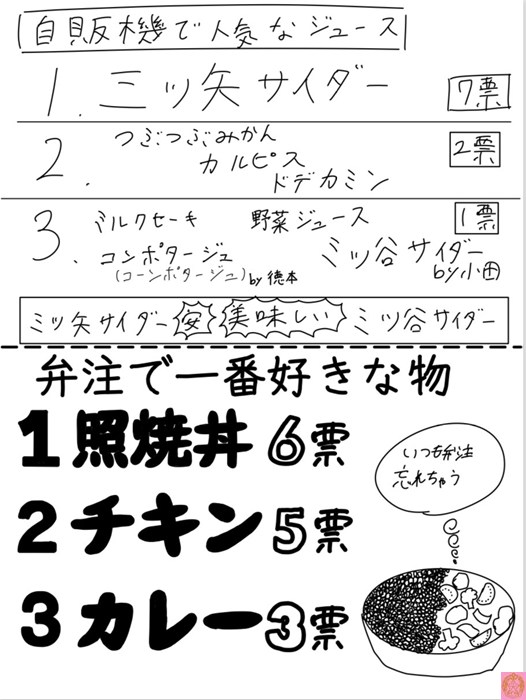 自販機で人気なジュース
1. 三ツ矢サイダー 7票
2. つぶつぶみかん
カルピス
ドデカミン
2票
3. ミルクセーキ 野菜ジュース 1票
コンポタージュ ミツ谷サイダー
(コーンポタージュ) by 徳本 by 小田
ミツ矢サイダー 安 美味しい ミツ谷サイダー
弁注で一番好きな物
1 照焼丼 6票
2 チキン 5票
3 カレー 3票
いつも弁注
忘れちゃう